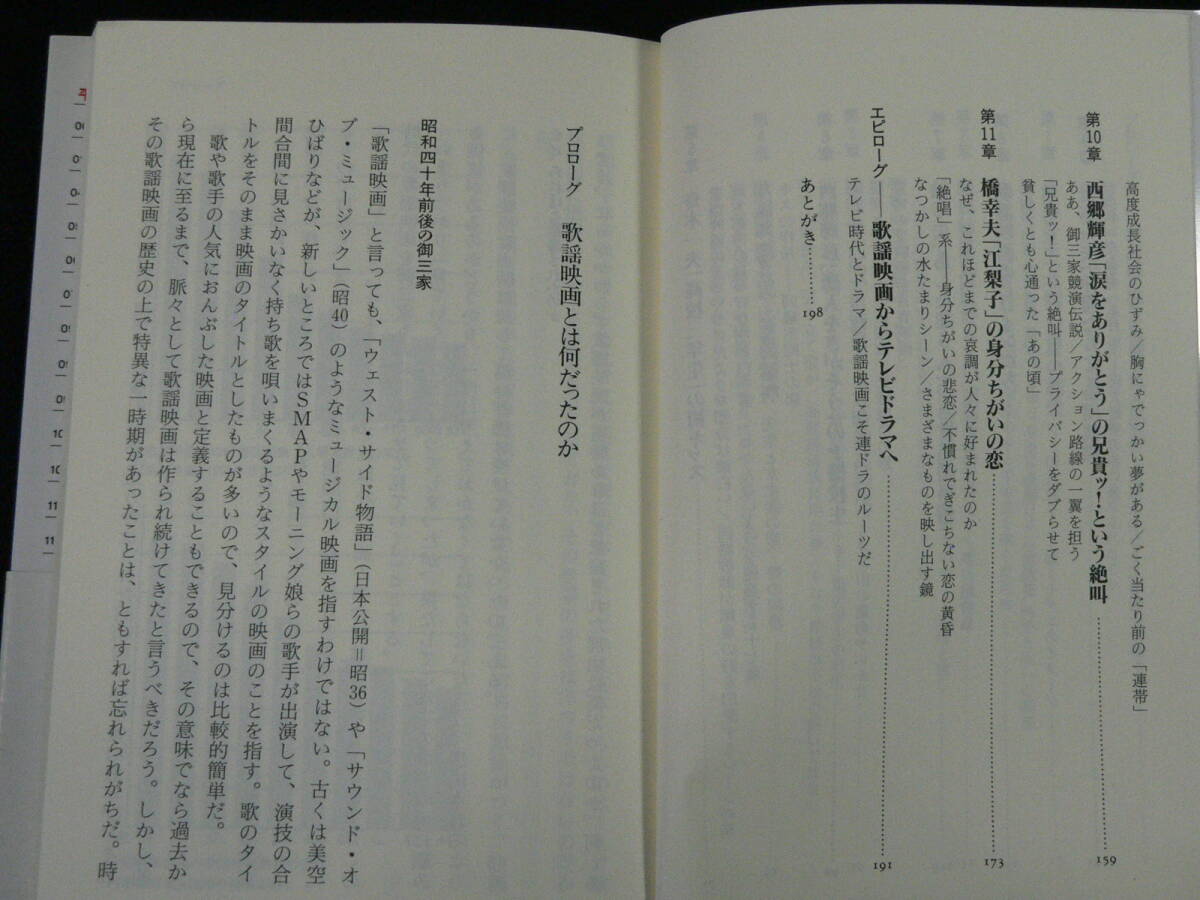 高度成長社会のひずみ/胸にゃでっかい夢がある/ごく当たり前の「連帯」
第10章 西郷輝彦「涙をありがとう」の兄貴ッ!という絶叫 159
ああ、御三家競演伝説/アクション路線の一翼を担う
「兄貴ッ!」という絶叫――プライバシーをダブらせて
貧しくとも心通った「あの頃」
第11章 橋幸夫「江梨子」の身分ちがいの恋 173
なぜ、これほどまでの哀調が人々に好まれたのか
「絶唱」系――身分ちがいの悲恋/不慣れでぎこちない恋の黄昏
なつかしの水たまりシーン/さまざまなものを映し出す鏡
エピローグ――歌謡映画からテレビドラマへ 191
テレビ時代とドラマ/歌謡映画こそ連ドラのルーツだ
あとがき 198
プロローグ 歌謡映画とは何だったのか
昭和四十年前後の御三家
「歌謡映画」と言っても、「ウェスト・サイド物語」(日本公開=昭36)や「サウンド・オ
ブ・ミュージック」(昭40)のようなミュージカル映画を指すわけではない。古くは美空
ひばりなどが、新しいところではSMAPやモーニング娘らの歌手が出演して、演技の合
間合間に見さかいなく持ち歌を唄いまくるようなスタイルの映画のことを指す。歌のタイ
トルをそのまま映画のタイトルとしたものが多いので、見分けるのは比較的簡単だ。
歌や歌手の人気におんぶした映画と定義することもできるので、その意味でなら過去か
ら現在に至るまで、脈々として歌謡映画は作られ続けてきたと言うべきだろう。しかし、
その歌謡映画の歴史の上で特異な一時期があったことは、ともすれば忘れられがちだ。時